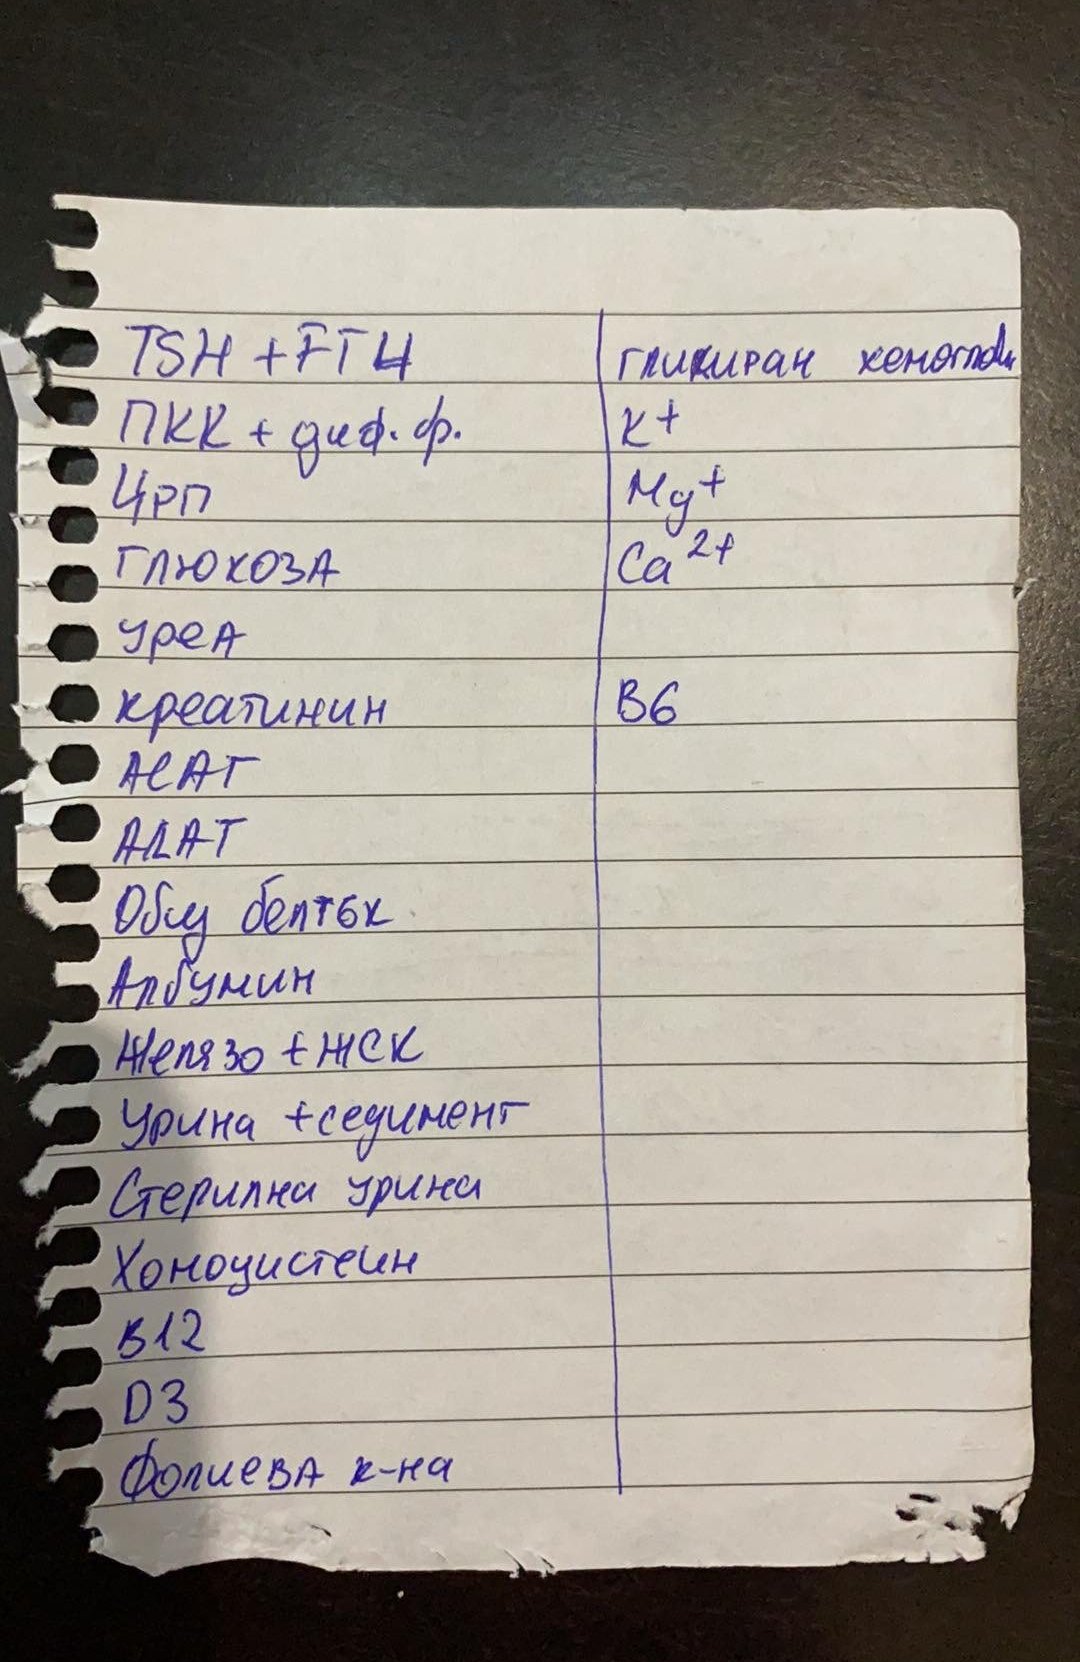 TSH + FT4
ПКК + диф. ф.
ЦРП
ГЛЮКОЗА
УреА
креатинин
АСАТ
АЛАТ
Общ белтък
Албумин
Желязо + ЖСК
Урина + седимент
Стерилна урина
Хомоцистеин
B12
D3
Фолиева к-на
гликиран хемоглобин
K+
Mg+
Ca 2+
B6